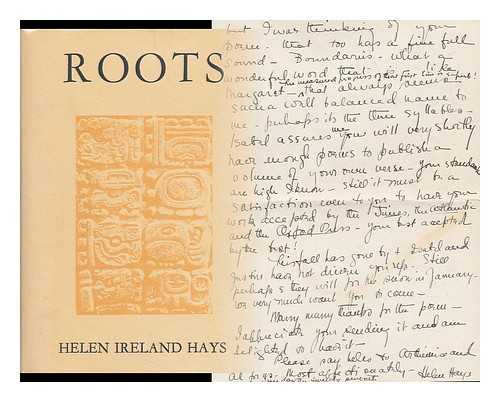 ROOTS
HELEN IRELAND HAYS
but I was thinking of your
poem. that too has a fine full
sound – Boundaries – what a
wonderful word that – like
the measured progress of that first line is superb!
Margaret – that always seems
such a well balanced name to
me – perhaps its the three syllables –
Isabel assures me you will very shortly
have enough poems to publish a
volume of your own verse – your standards
are high I know – still it must be a
satisfaction even to you to have your
work accepted by the Times, the Atlantic
and the Oxford Press – your best accepted
by the best!
has gone by &
have not driven you up – Still
perhaps they will for the snow in January –
we very much want you to come –
Many many thanks for the poem –
I appreciate your sending it and am
delighted to have it –
Please say hello to and
Most affectionately – Helen Hays